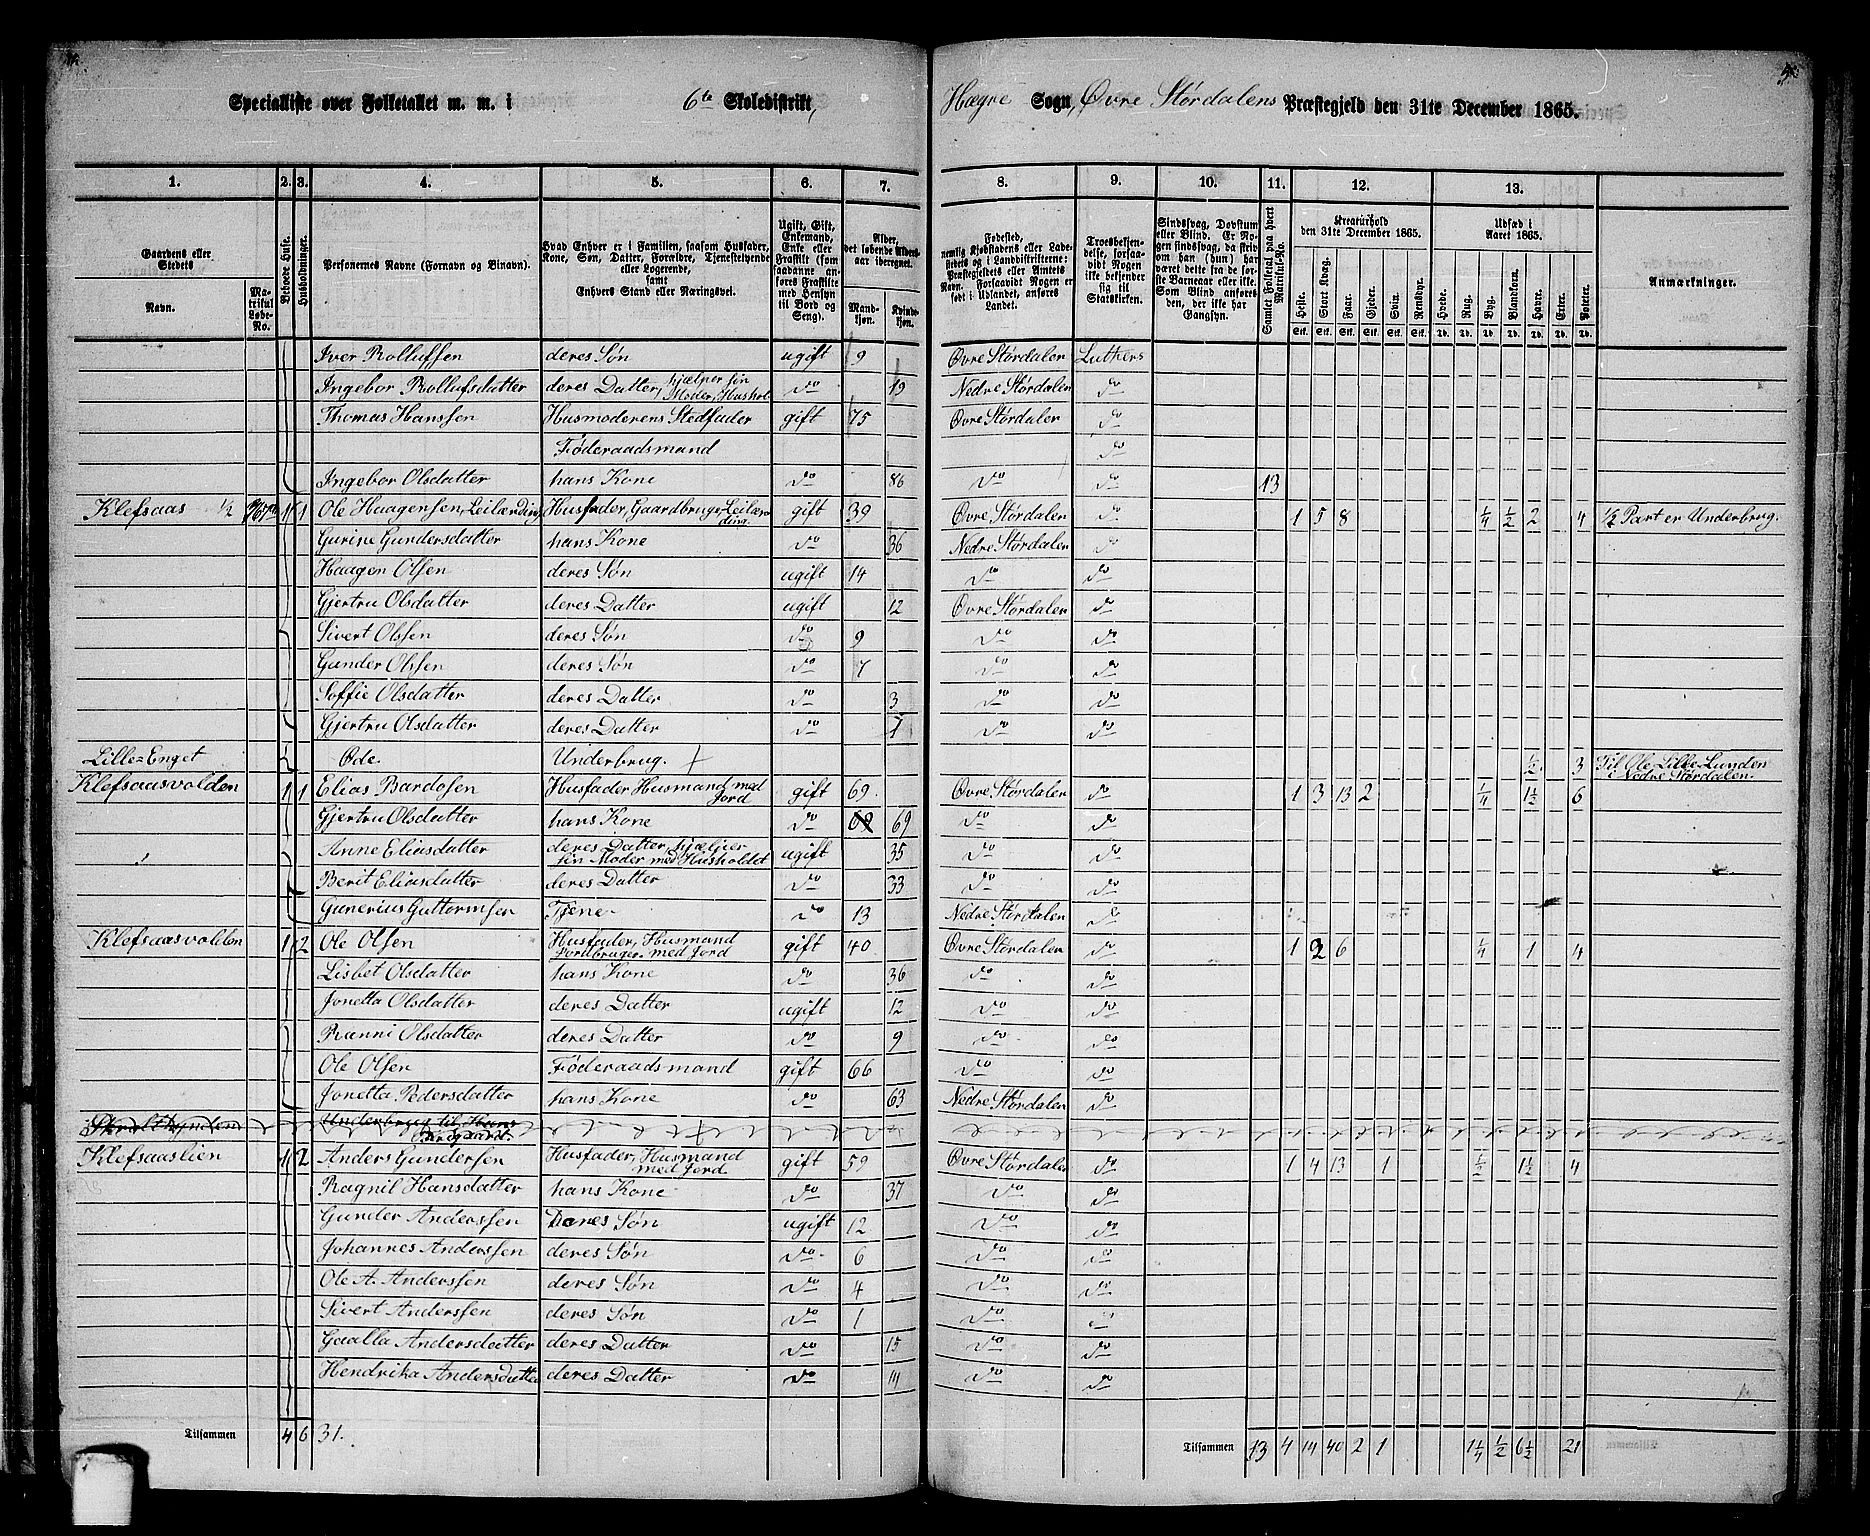 Specialliste over Folketallet m. m. i 6te Skoledistrikt, Hægre Sogn, Øvre Størdalens Præstegjeld den 31te December 1865.
1. 2. 3. 4. 5. 6. 7. 8. 9. 10. 11. 12. 13.
Gaardens eller Stedets
Navn. Matrikul Løbe-No.
Beboede Huse.
Husholdninger.
Personernes Navne (Fornavn og Binavn).
Hvad Enhver er i Familien, saasom Husfader, Kone, Søn, Datter, Forældre, Tjenestetyende eller Logerende, samt Enhvers Stand eller Næringsvei.
Ugift, Gift, Enkemand, Enke eller Fraskilt (som saadanne anføres Fraskilte med Hensyn til Bord og Seng).
Alder, det løbende Alders-aar iberegnet.
Mandkjøn. Kvindekjøn.
Fødested, nemlig Kjøbstadens eller Ladestedets og i Landdistrikterne: Præstegjeldets eller Amtets Navn. Forsaavidt Nogen er født i Udlandet, anføres Landet.
Troesbekjendelse, forsaavidt Nogen ikke bekjender sig til Statskirken.
Sindssvag, Døvstum eller Blind. Er Nogen sindssvag, da skriv om han (hun) har været dette fra de første Barneaar eller ikke. Som Blind anføres den, der ikke har Gangsyn.
Samlet Folketal paa hvert Matrikul-No.
Kreaturhold den 31te December 1865.
Heste. Stort Kvæg. Faar. Gjeder. Svin. Rensdyr.
Udsæd i Aaret 1865.
Hvede. Rug. Byg. Blandkorn. Havre. Erter. Poteter.
Anmærkninger.
Iver Rolluffsen deres Søn ugift 9 Øvre Størdalen Luthers
Ingebor Rollufsdatter deres Datter, hjælper sin Moder, Hushol do 19 Nedre Størdalen do
Thomas Hanssen Husmoderens Stedfader gift 75 Øvre Størdalen do
Føderaadsmand do
Ingebor Olsdatter hans Kone do 86 do do 13
Klefsaas ½ 1 1 Ole Haagensen, Leilænding Husfader, Gaardbruger, Leilænding. gift 39 Øvre Størdalen do 1 5 8 ¼ ½ 2 4 ½ Part er Underbrug.
Gurine Gundersdatter hans Kone do 36 Nedre Størdalen do
Haagen Olsen deres Søn ugift 14 do do
Gjertru Olsdatter deres Datter ugift 12 Øvre Størdalen do
Sivert Olssen deres Søn do 9 do do
Gunder Olssen deres Søn do 7 do do
Soffie Olsdatter deres Datter do 3 do do
Gjertru Olsdatter deres Datter do 1 do do
Lille-Enget Øde. Underbrug. ½ 3 Til Ole Lille-Lunden i Nedre Størdalen.
Klefsaasvolden 1 1 Elias Bardosen Husfader Husmand med Jord gift 69 Øvre Størdalen do 1 3 13 2 ¼ 1½ 6
Gjertru Olsdatter hans Kone do 69 do do
Anne Eliasdatter deres Datter, hjælper sin Moder med Husholdet ugift 35 do do
Berit Eliasdatter deres Datter do 33 do do
Gunerius Guttormsen Tjene do 13 Nedre Størdalen do
Klefsaasvolden 1 2 Ole Olsen Husfader, Husmand Jordbruger med Jord gift 40 Øvre Størdalen do 1 2 6 ¼ 1 4
Lisbet Olsdatter hans Kone do 36 do do
Jonetta Olsdatter deres Datter ugift 12 do do
Ranni Olsdatter deres Datter do 9 do do
Ole Olsen Føderaadsmand gift 66 do do
Jonetta Pedersdatter hans Kone do 63 Nedre Størdalen do
Underbrug til Hans
Klefsaaslien 1 2 Anders Gundersen Husfader, Husmand med Jord gift 59 Øvre Størdalen do 1 4 13 1 ½ 1½ 4
Ragnil Hansdatter hans Kone do 37 do do
Gunder Anderssen Deres Søn ugift 12 do do
Johannes Anderssen deres Søn do 6 do do
Ole A. Anderssen deres Søn do 4 do do
Sivert Anderssen deres Søn do 1 do do
Gaalla Andersdatter deres Datter do 15 do do
Hendrika Andersdatter deres Datter do do do
Tilsammen 4 6 31. Tilsammen 13 4 14 40 2 1 1¼ ½ 6½ 21